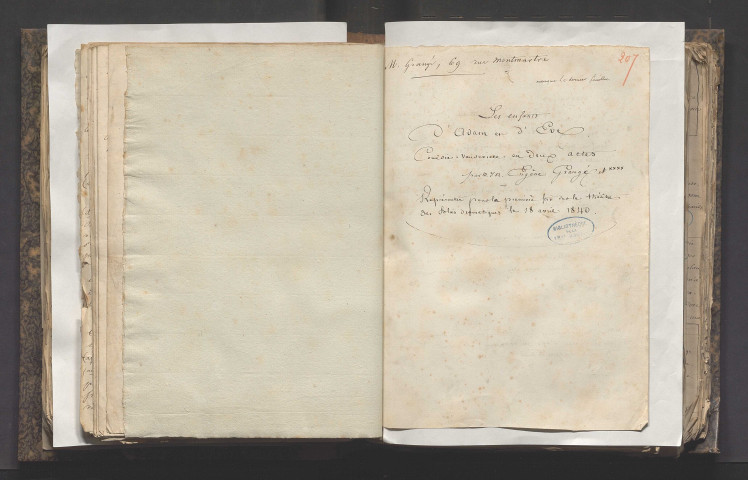 M. Grangé, 69 rue montmartre
207
manque le dernier feuillet
Les enfans
D'Adam et d'Eve
Comédie-vaudeville en deux actes
par MM. Eugène Grangé et ****
Représentée pour la première fois sur le théâtre
des folies dramatiques le 18 avril 1840.
BIBLIOTHÈQUE